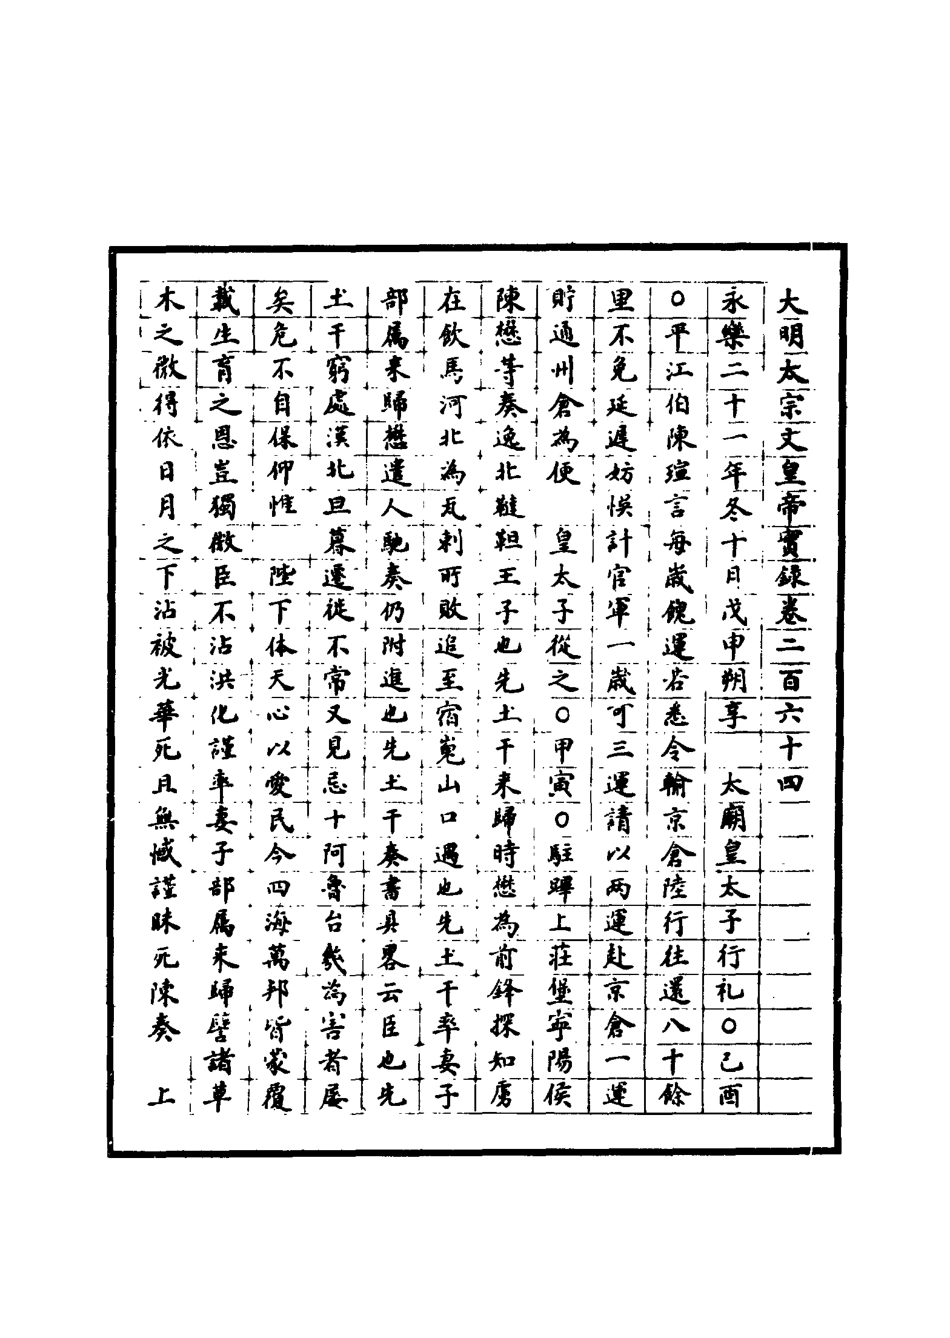 大明太宗文皇帝實錄卷二百六十四
永樂二十一年冬十日戊申朔享　太廟皇太子行礼○己酉
○平江伯陳瑄言每歲餽運若悉令輸京倉陸行往還八十餘
里不免延遲妨悞計官軍一歲可三運請以两運赴京倉一運
貯通州倉為便　皇太子從之○甲寅○駐蹕上莊堡寧陽侯
陳懋等奏逸北韃靼王子也先土干来歸時懋為前鋒探知虜
在飲馬河北為瓦剌所敗追至宿嵬山口遇也先土干率妻子
部属来歸懋遣人馳奏仍附進也先土干奏書具畧云臣也先
土干窮處漠北旦暮遷徙不常又見忌十阿魯台幾為害者屡
矣危不自保仰惟　陛下体天心以愛民今四海萬邦皆蒙覆
載生育之恩豈獨微臣不沾洪化謹率妻子部属来歸譬諸草
木之微得依日月之下沾被光華死且無憾謹昧死陳奏　上